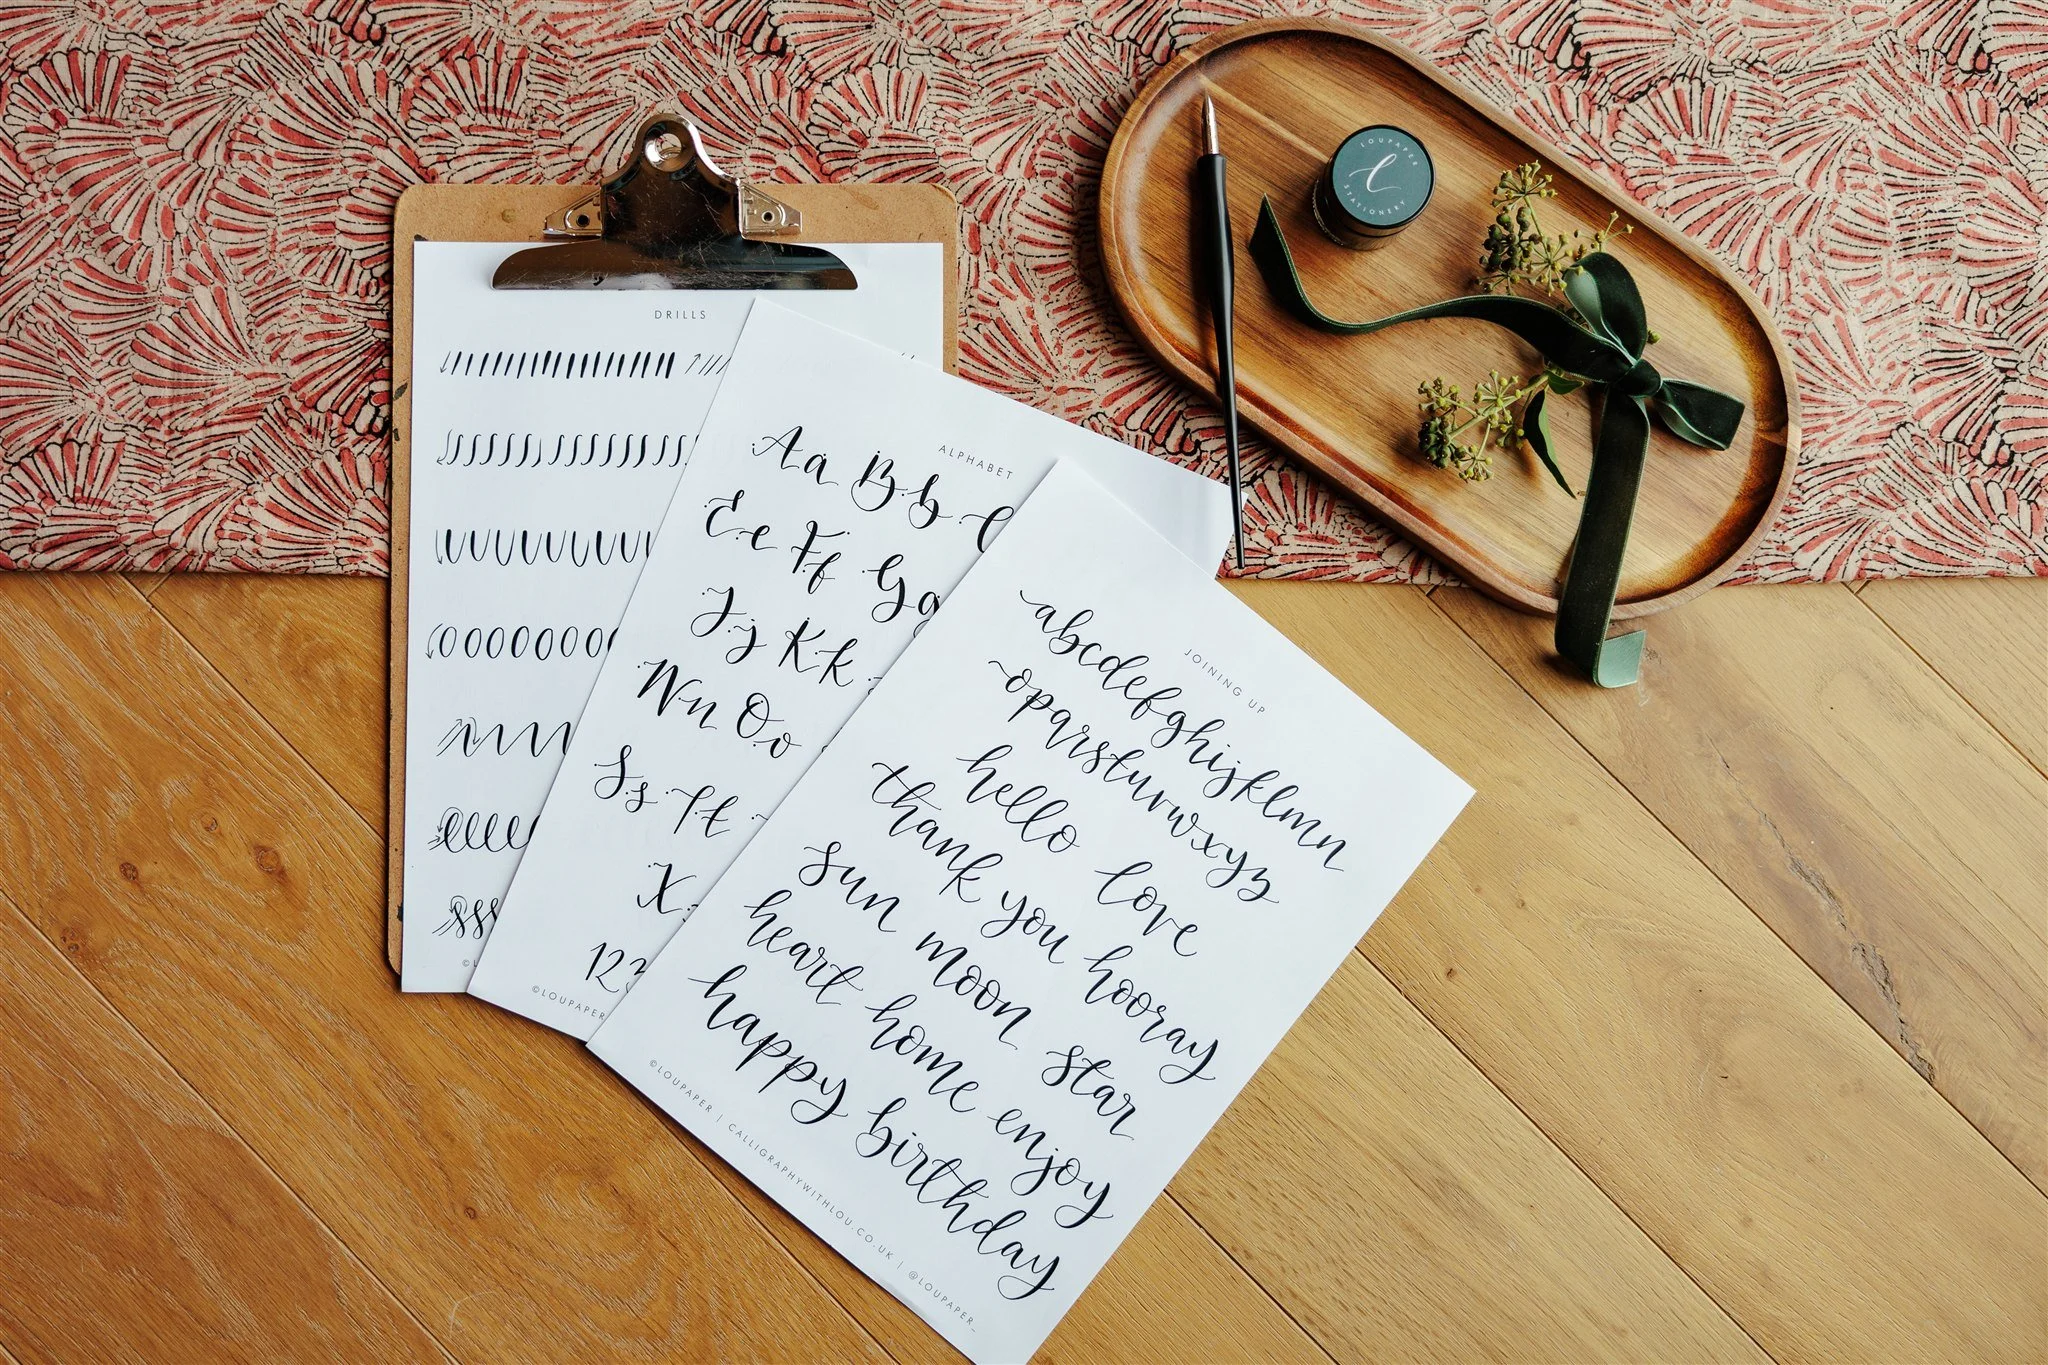 DRILLS
ALPHABET
Aa Bb C
Ee Ff Gg
Jj Kk
Nn Oo
Ss Tt
X
123
©LOUPAPER
JOINING UP
abcdefghijklmn
opqrstuvwxyz
hello love
thank you hooray
sun moon star
heart home enjoy
happy birthday
©LOUPAPER | CALLIGRAPHYWITHLOU.CO.UK | @LOUPAPER_
LOUPAPER
l
STATIONERY